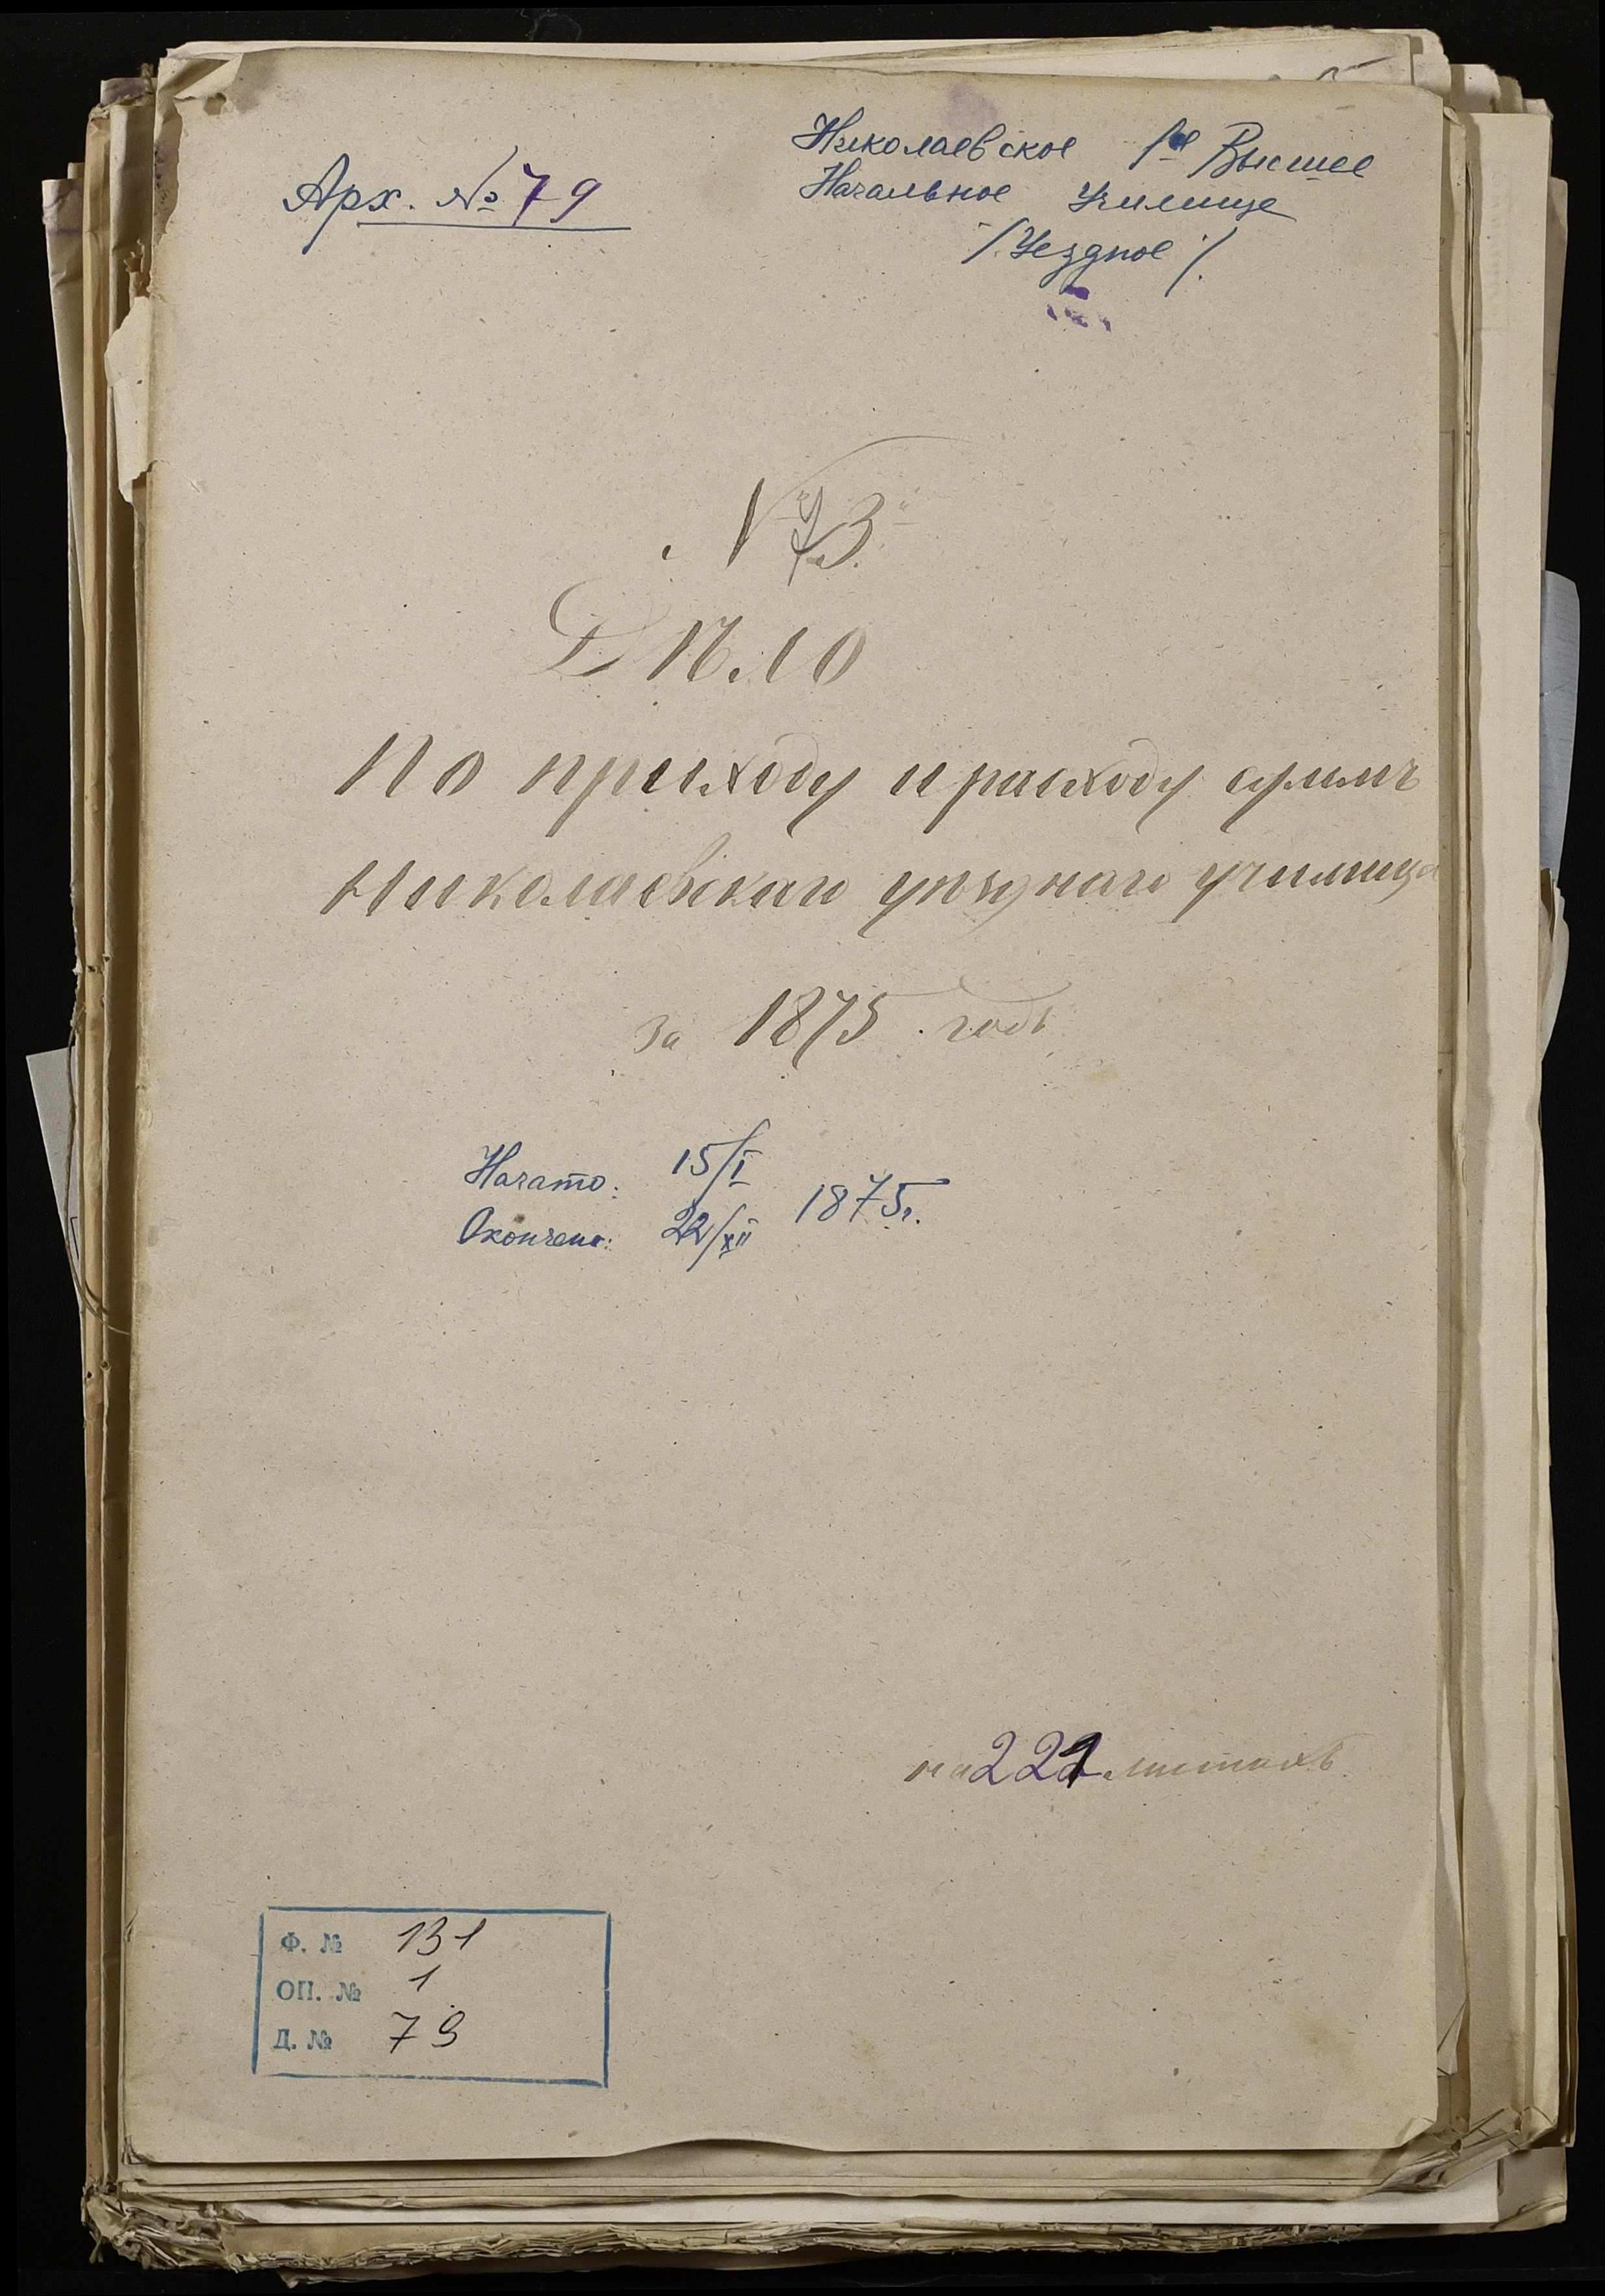 Арх. № 79
Николаевское 1е Высшее
Начальное Училище
/Уездное/.
№ 73.
Дѣло
По приходу и расходу суммъ
Николаевскаго уѣзднаго училища
за 1875 годъ
Начато: 15/I
1875г.
Окончено: 22/XII
на 221 листахъ
Ф. № 131
ОП. № 1
Д. № 79